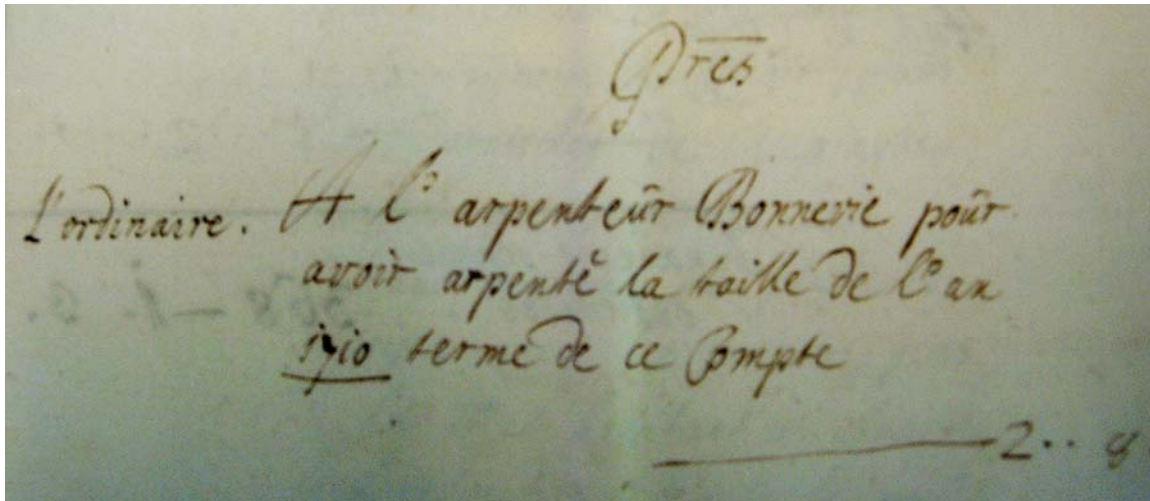 Pres
L'ordinaire. A l'arpenteur Bonnerie pour
avoir arpenté la taille de l'an
1710 terme de ce Compte
2..